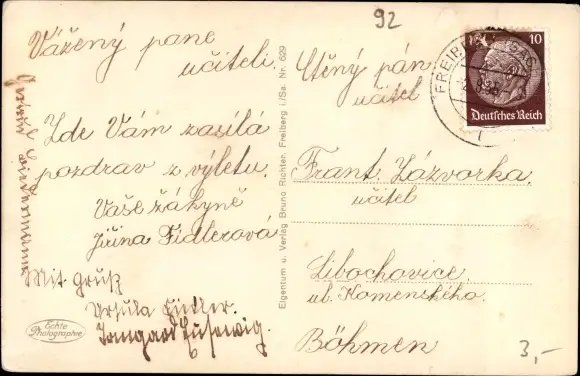 92
Vážený pane
učiteli.
Zde Vám zasílá
pozdrav z výletu.
Vaše žákyně
Jiřina Fidlerová
Mit Gruß
Ursula
Irmgard
Echte
Photographie
Eigentum u. Verlag Bruno Richter, Freiberg i/Sa. Nr. 629
Ctěný pán
učitel
Frant. Závorka.
učitel
Libochovice
ul. Komenského.
Böhmen
FREIBERG
10
Deutsches Reich
3,-